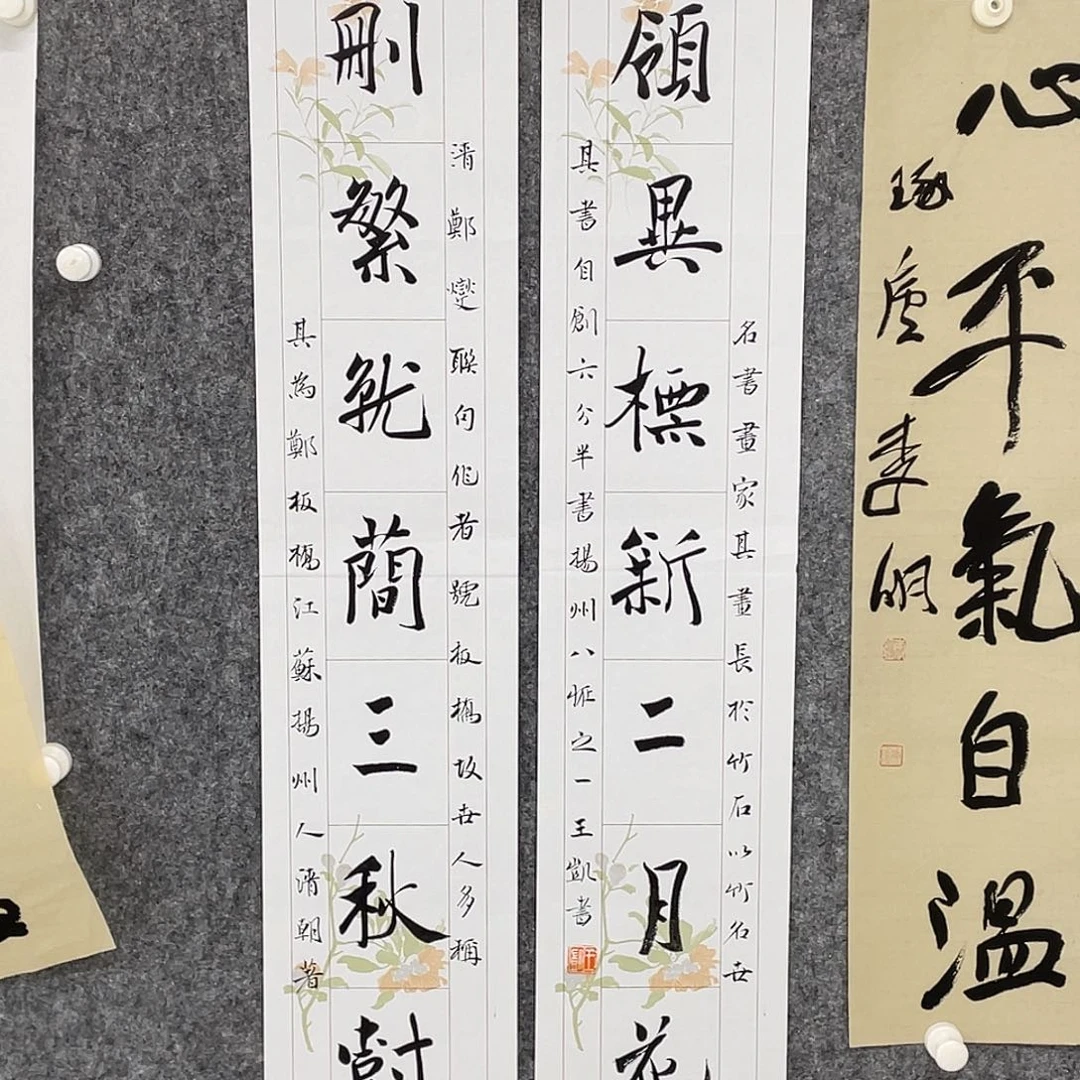 刪繁就簡三秋樹
清鄭燮聯句作者號板橋故世人多稱
其為鄭板橋江蘇揚州人清朝著
領異標新二月花
名書畫家其畫長於竹石以竹名世
其書自創六分半書揚州八怪之一王凱書
心平氣自溫
琢李明